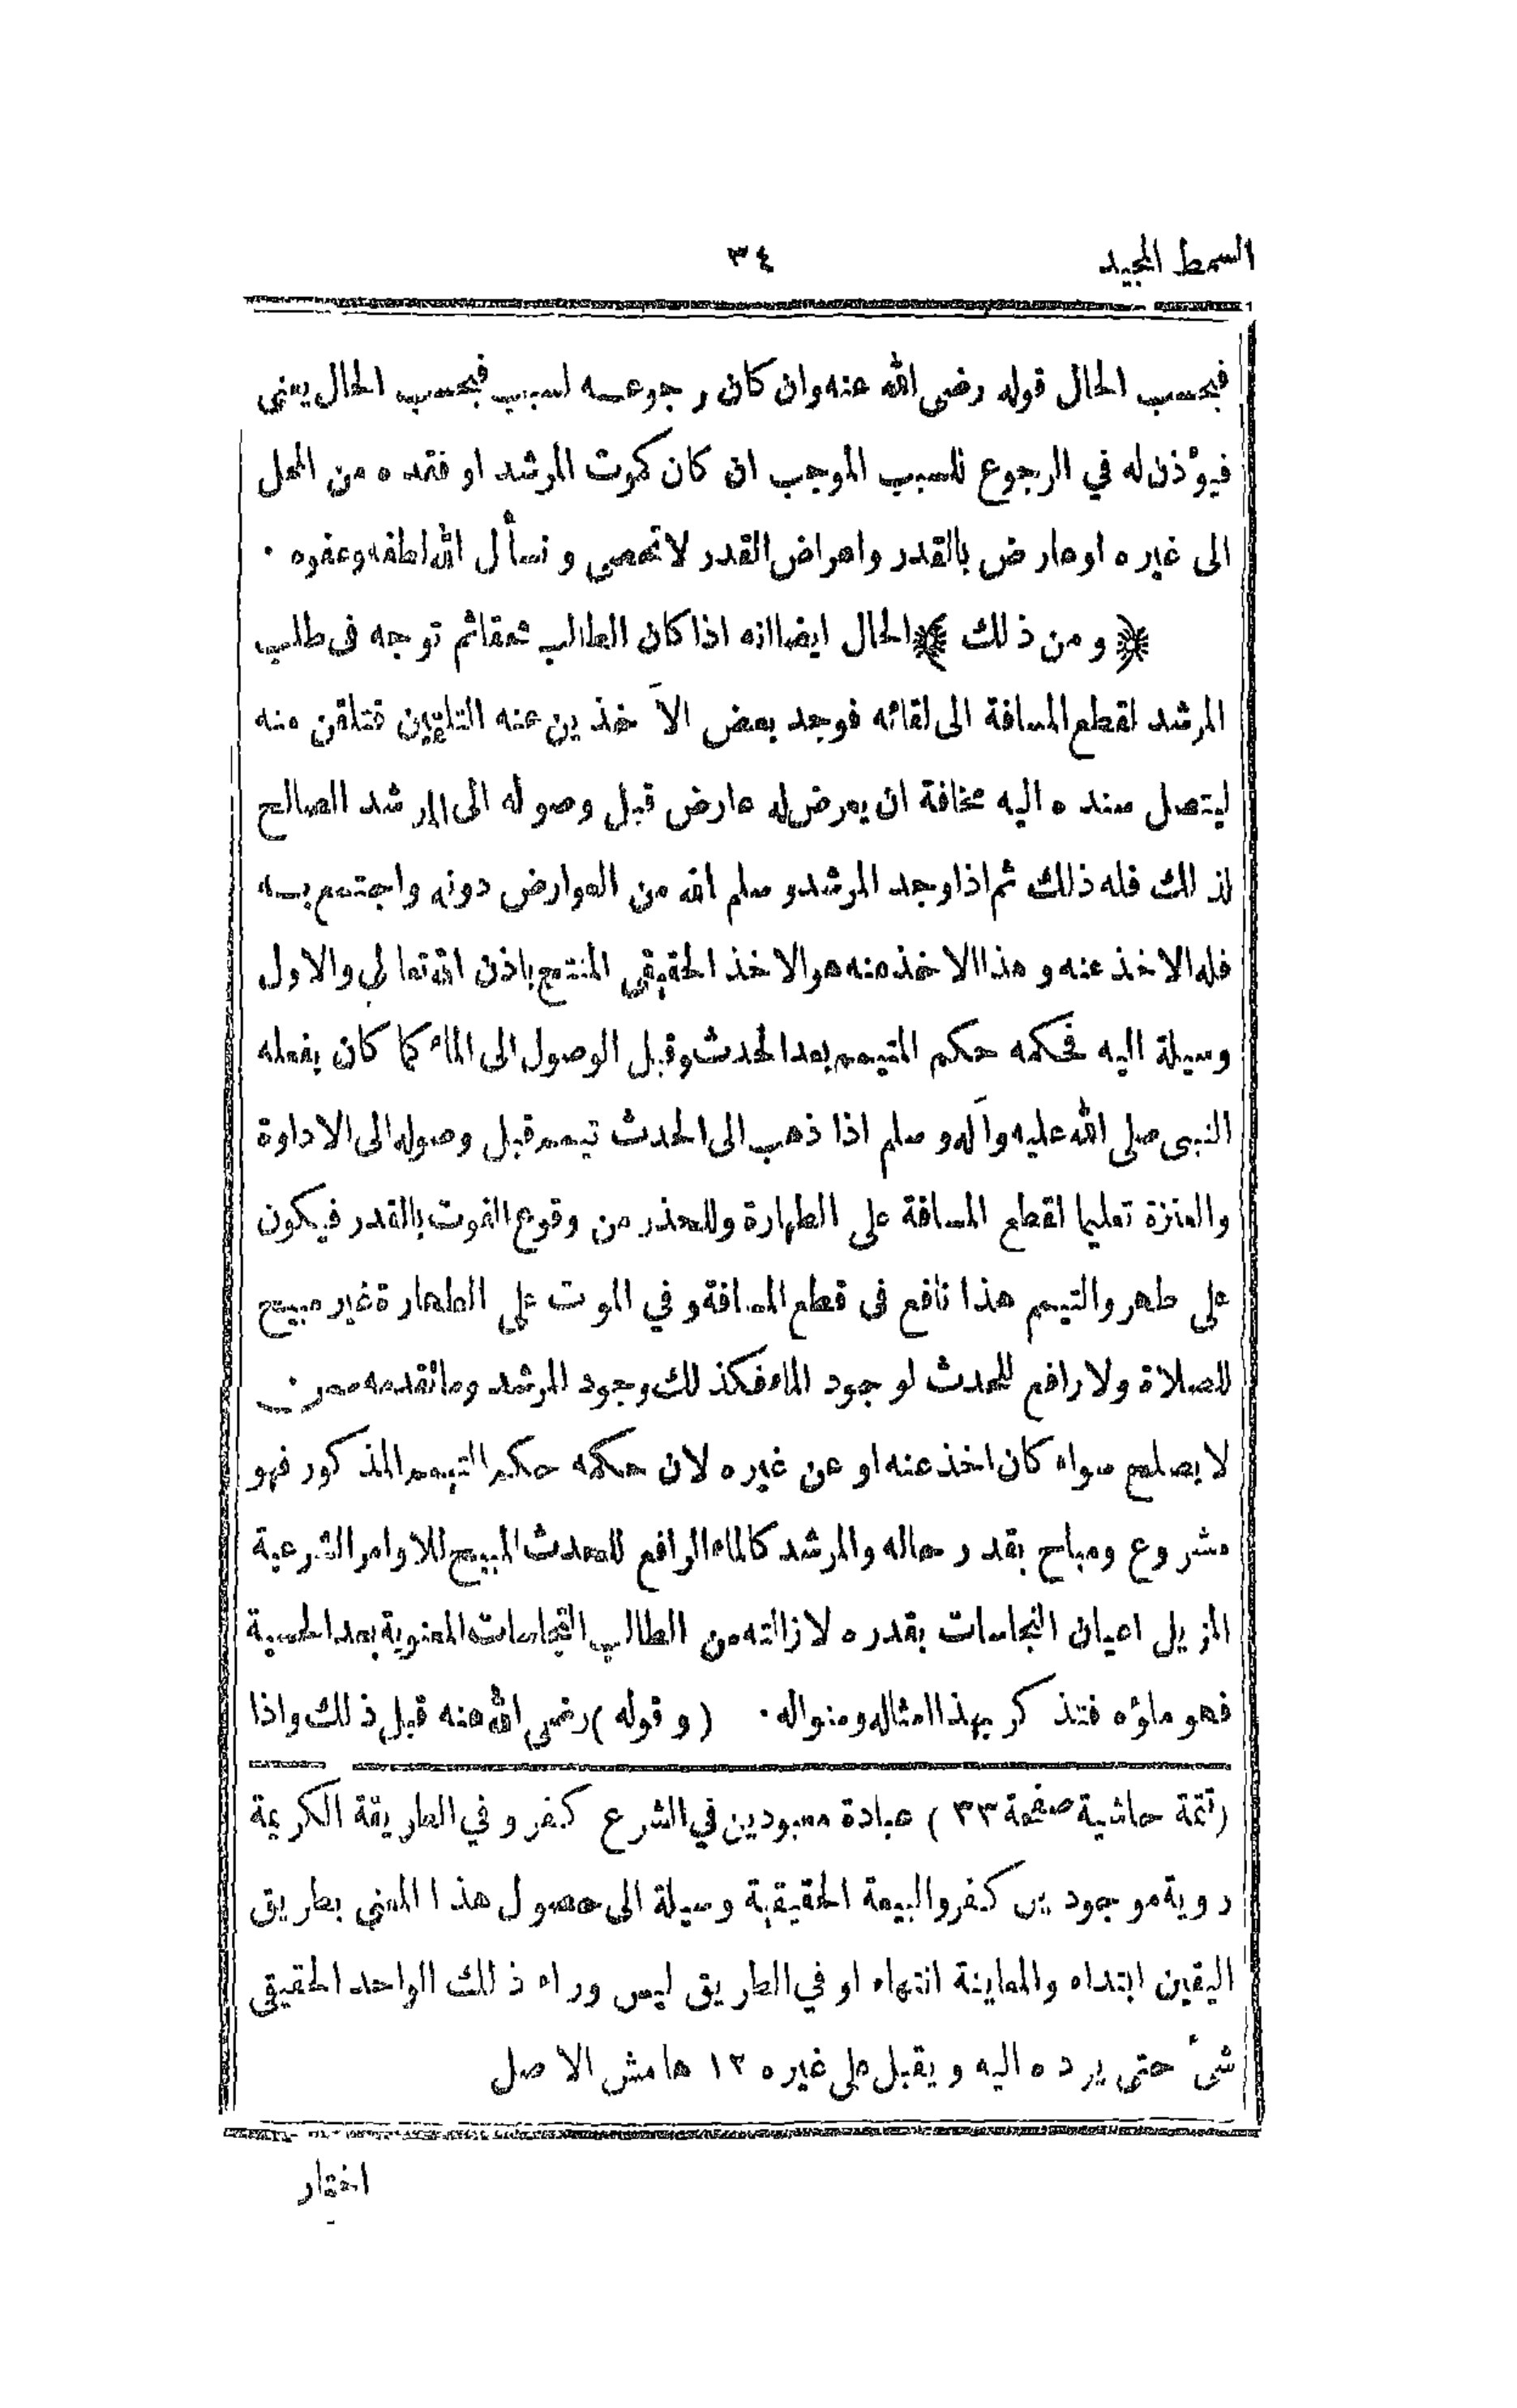 السمط المجيد
٣٤
فبحسب الحال قوله رضى الله عنه وان كان رجوعه لسبب فبحسب الحال يعني
فيؤذن له في الرجوع للسبب الموجب ان كان كموت المرشد او فقده من المحل
الى غيره او عارض بالقدر واعراض القدر لا تحصى ونسأل الله لطفه وعفوه ٠
﴿ ومن ذلك ﴾ الحال ايضا انه اذا كان الطالب محقا ثم توجه فى طلب
المرشد لقطع المسافة الى لقائه فوجد بعض الآخذين عنه التلقين فتلقن منه
ليتصل سنده اليه مخافة ان يعرض له عارض قبل وصوله الى المرشد الصالح
لذلك فله ذلك ثم اذا وجد المرشد وسلم الله من العوارض دونه واجتمع به
فله الاخذ عنه وهذا الاخذ منه هو الاخذ الحقيقى المنتج باذن الله تعالى والاول
وسيلة اليه فحكمه حكم المتيمم بعد الحدث وقبل الوصول الى الماء كما كان يفعله
النبى صلى الله عليه وآله وسلم اذا ذهب الى الحدث تيمم قبل وصوله الى الاداوة
والعنزة تعليما لقطع المسافة على الطهارة وللحذر من وقوع الفوت بالقدر فيكون
على طهر والتيمم هذا نافع فى قطع المسافة وفي الموت على الطهارة غير مبيح
للصلاة ولا رافع للحدث لوجود الماء فكذلك وجود المرشد وما تقدمه ممن
لا يصلح سواء كان اخذ عنه او عن غيره لان حكمه حكم التيمم المذكور فهو
مشروع ومباح بقدر حاله والمرشد كالماء الرافع للحدث المبيح للاوامر الشرعية
المزيل اعيان النجاسات بقدره لازالته من الطالب النجاسات المعنوية بعد الحسية
فهو ماؤه فتذكر بهذا امثاله ومنواله ٠ (وقوله) رضى الله عنه قبل ذلك واذا
(تتمة حاشية صفحة ٣٣) عبادة معبودين في الشرع كفر وفي الطريقة الكريمة
روية موجودين كفر والبيعة الحقيقية وسيلة الى حصول هذا المعنى بطريق
اليقين ابتداء والمعاينة انتهاء او في الطريق ليس وراء ذلك الواحد الحقيقي
شئ حتى يرده اليه ويقبل على غيره ١٢ هامش الاصل
اختار